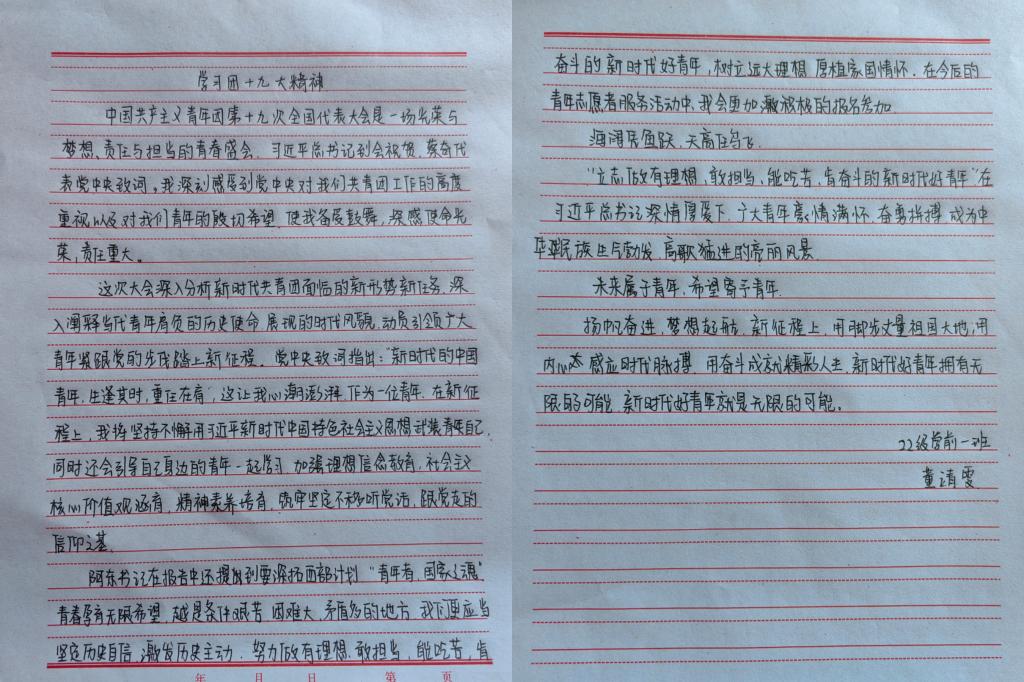 学习团十九大精神
中国共产主义青年团第十九次全国代表大会是一场光荣与
梦想、责任与担当的青春盛会。习近平总书记到会祝贺，蔡奇代
表党中央致词。我深刻感受到党中央对我们共青团工作的高度
重视以及对我们青年的殷切希望，使我备受鼓舞，深感使命光
荣，责任重大。
这次大会深入分析新时代共青团面临的新形势新任务，深
入阐释当代青年肩负的历史使命，展现的时代风貌，动员引领广大
青年紧跟党的步伐踏上新征程。党中央致词指出："新时代的中国
青年，生逢其时，重任在肩"，这让我心潮澎湃，作为一位青年，在新征
程上，我将坚持不懈用习近平新时代中国特色社会主义思想武装青年自己，
同时还会引导自己身边的青年一起学习，加强理想信念教育，社会主义
核心价值观涵育，精神素养培育，筑牢坚定不移听党话，跟党走的
信仰之基。
阿东书记在报告中还提出到要深拓西部计划，"青年者，国家之魂"
青春孕育无限希望，越是条件艰苦，困难大，矛盾多的地方，我们更应当
坚定历史自信，激发历史主动，努力做有理想，敢担当，能吃苦，肯
年 月 日 第 页
奋斗的新时代好青年，树立远大理想，厚植家国情怀。在今后的
青年志愿者服务活动中，我会更加激积极的报名参加。
海阔凭鱼跃，天高任鸟飞。
"立志做有理想，敢担当，能吃苦，肯奋斗的新时代好青年"在
习近平总书记深情厚爱下，广大青年豪情满怀，奋勇拼搏，成为中
华民族生气勃发，高歌猛进的亮丽风景。
未来属于青年，希望寄予青年。
扬帆奋进，梦想起航，新征程上，用脚步丈量祖国大地，用
内心感应时代脉搏，用奋斗成就精彩人生，新时代好青年拥有无
限的可能，新时代好青年就是无限的可能。
22级学前一班
董靖雯